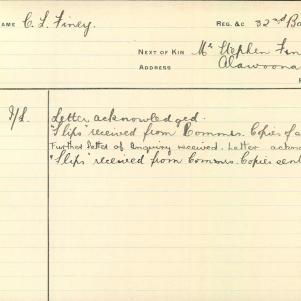 NAME C. L. Finey. REG. &C 32nd Ba
NEXT OF KIN Mr Stephen Fin
ADDRESS Alawoona
Letter acknowledged.
"Slips" received from Commrs. Copies of a
Further letter of inquiry received. Letter ackno
"Slips" received from Commrs. Copies sent